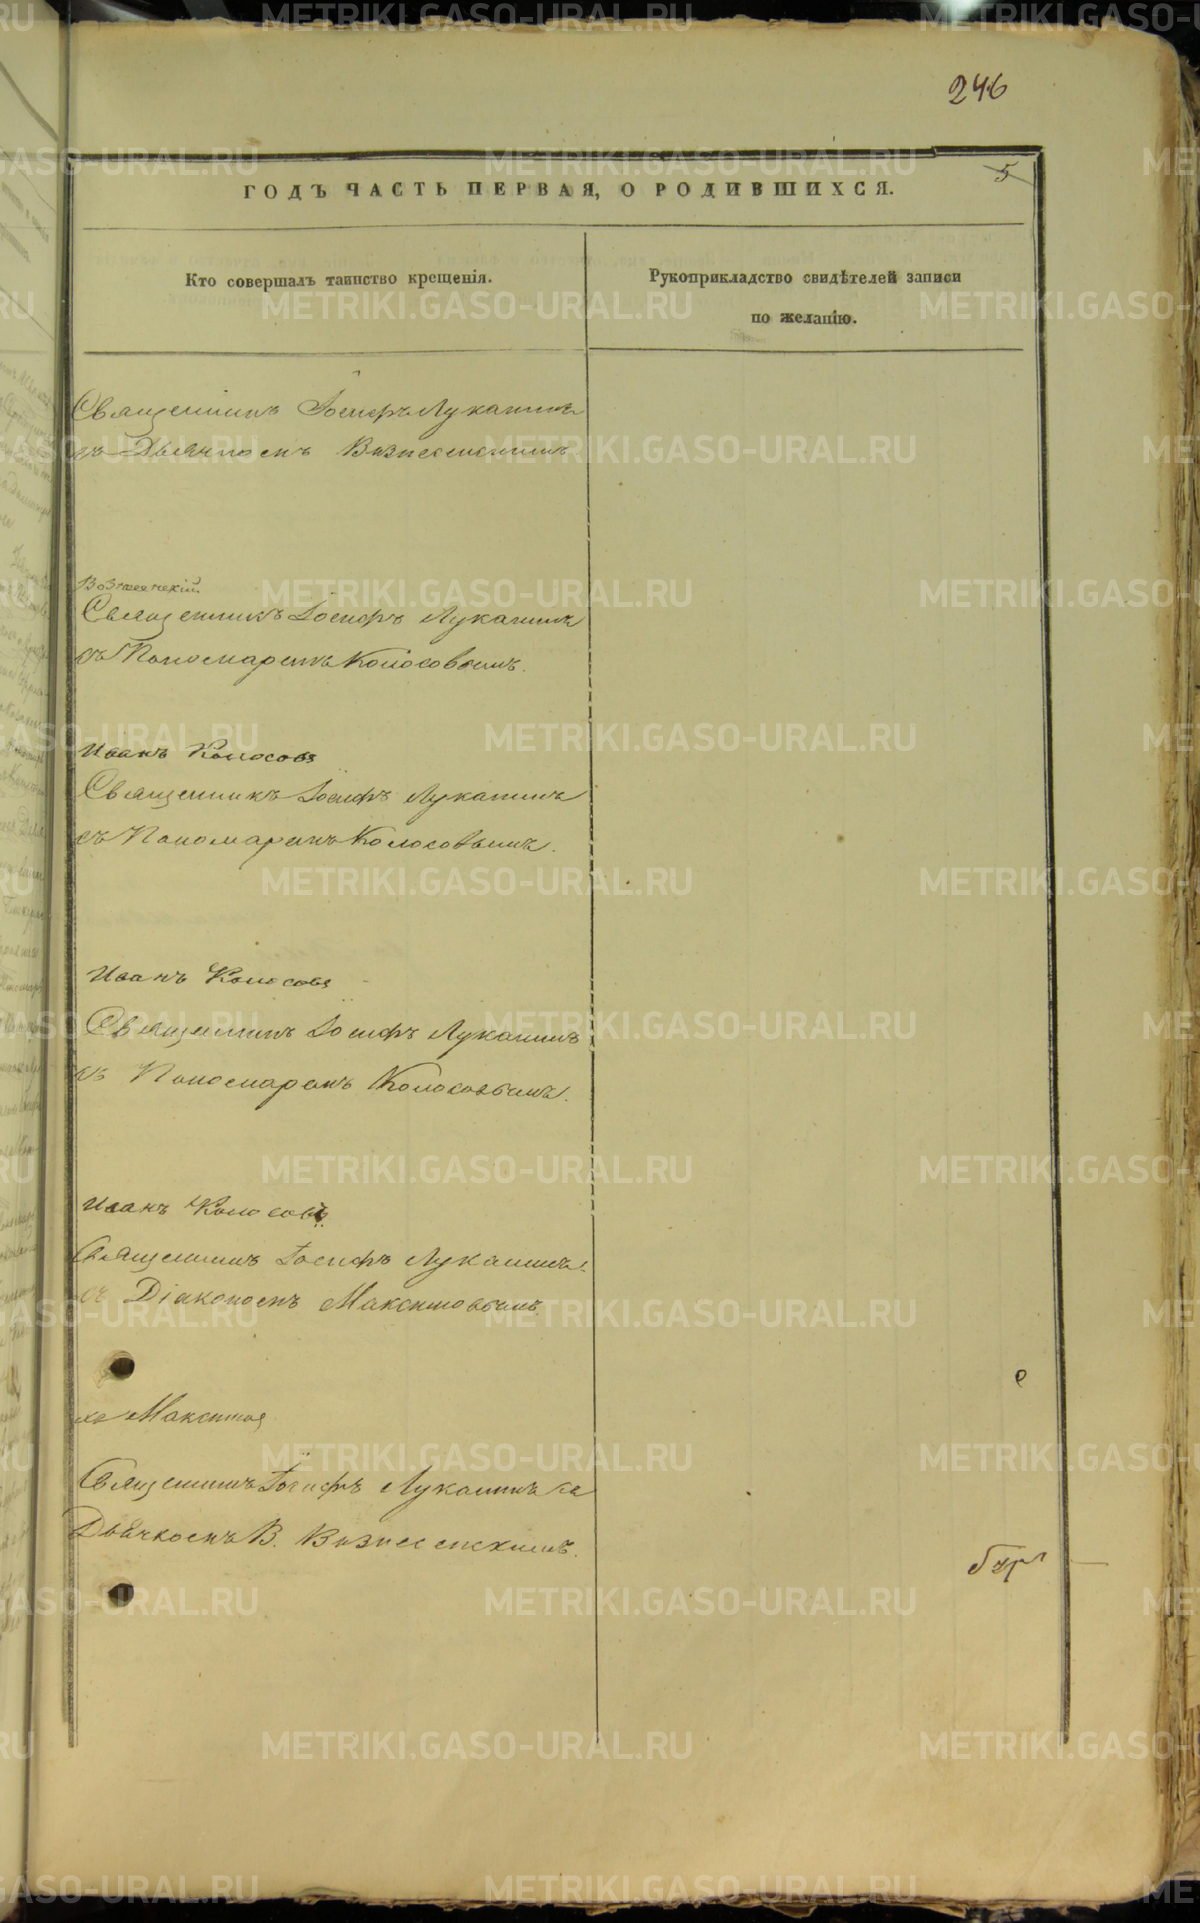 246
5
ГОДЪ ЧАСТЬ ПЕРВАЯ, О РОДИВШИХСЯ.
Кто совершалъ таинство крещенія.
Рукоприкладство свидѣтелей записи
по желанію.
Священникъ Іосифъ Луканинъ
съ Дьячкомъ Вознесенскимъ
Вознесенскій
Священникъ Іосифъ Луканинъ
съ Пономаремъ Колосовымъ.
Иванъ Колосовъ
Священникъ Іосифъ Луканинъ
съ Пономаремъ Колосовымъ.
Иванъ Колосовъ
Священникъ Іосифъ Луканинъ
съ Пономаремъ Колосовымъ.
Иванъ Колосовъ
Священникъ Іосифъ Луканинъ
съ Діакономъ Максимовымъ
Максимов
Священникъ Іосифъ Луканинъ съ
Дьячкомъ В. Вознесенскимъ.
METRIKI.GASO-URAL.RU